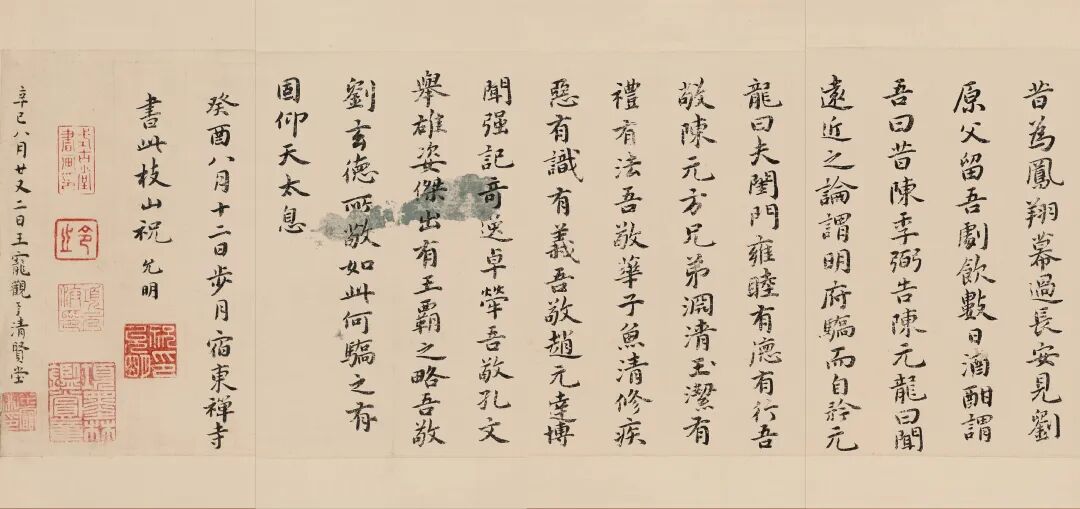 昔為鳳翔幕過長安見劉
原父留吾劇飲數日酒酣謂
吾曰昔陳季弼告陳元龍曰聞
遠近之論謂明府驕而自矜元
龍曰夫閨門雍睦有德有行吾
敬陳元方兄弟淵清玉潔有
禮有法吾敬華子魚清修疾
惡有識有義吾敬趙元達博
聞强記奇逸卓犖吾敬孔文
舉雄姿傑出有王霸之略吾敬
劉玄德所敬如此何驕之有
因仰天太息
癸酉八月十二日步月宿東禪寺
書此枝山祝允明
祝允明印
令之
項墨林鑑賞章
辛巳八月廿又二日王寵觀于清賢堂